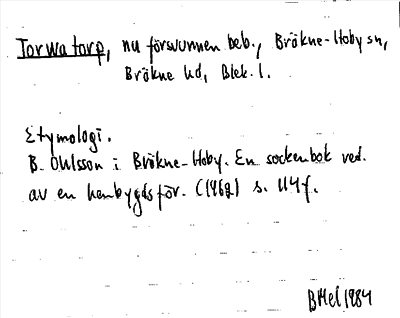 Torwatorp, nu försvunnen beb., Bräkne-Hoby sn,
Bräkne hd, Blek. l.
Etymologi.
B. Ohlsson i Bräkne-Hoby. En sockenbok red.
av en hembygdsför. (1962) s. 114f.
BHel 1984